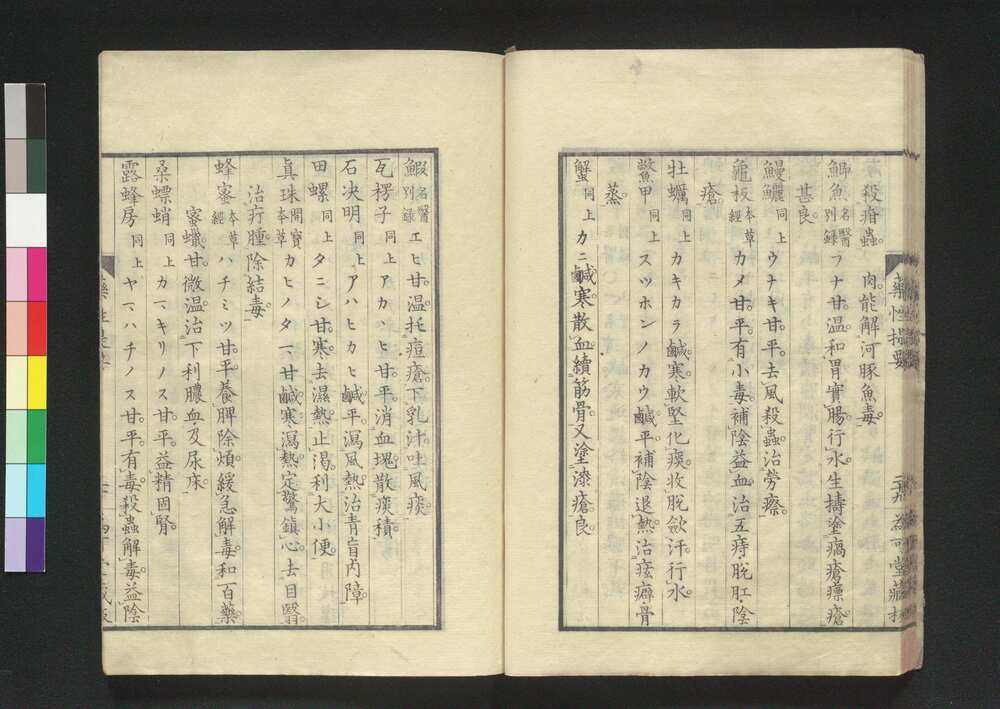 殺疳蟲。 肉。能解河豚魚毒。
鯽魚 名醫別録 フナ 甘。温。和胃實腸。行水。生擣。塗癘瘡瘭瘡
甚良。
鰻鱺 同上 ウナキ 甘。平。去風殺蟲。治勞瘵。
龜板 本草經 カメ 甘。平。有小毒。補陰益血。治五痔。脫肛。陰
瘡。
牡蠣 同上 カキカラ 鹹。寒。軟堅化痰。收脫斂汗。行水。
鱉甲 同上 スツホンノカウ 鹹。平。補陰退熱。治痃癖骨
蒸。
蟹 同上 カニ 鹹。寒。散血續筋骨。又塗漆瘡良。
鰕 名醫別録 エヒ 甘。温。托痘瘡。下乳汁。吐風痰。
瓦楞子 同上 アカヽヒ 甘。平。消血塊。散痰積。
石决明 同上 アハヒカヒ 鹹。平。瀉風熱。治青盲内障。
田螺 同上 タニシ 甘。寒。去濕熱。止渴。利大小便。
眞珠 開寶本草 カヒノタマ 甘鹹。寒。瀉熱。定驚。鎮心。去目翳。
治疔腫。除結毒。
蜂蜜 本草經 ハチミツ 甘。平。養脾除煩。緩急解毒。和百藥。
蜜蠟。甘。微温。治下利膿血。及尿床。
桑螵蛸 同上 カマキリノス 甘。平。益精固腎。
露蜂房 同上 ヤマハチノス 甘。平。有毒。殺蟲解毒。益陰